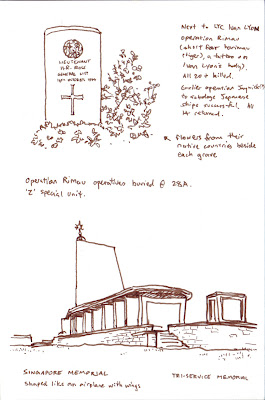 LIEUTENANT
H.R. ROSS
GENERAL LIST
16TH OCTOBER 1944
Next to LTC Ivan Lyon
operation Rimau
(short for harimau
(tiger), a tattoo on
Ivan Lyon's body).
All 20+ killed.
Earlier operation
to sabotage Japanese
ships successful. All
14 returned.
flowers from their
native countries beside
each grave
Operation Rimau operatives buried @ 28A.
'Z' special unit.
SINGAPORE MEMORIAL
shaped like an airplane with wings
TRI-SERVICE MEMORIAL